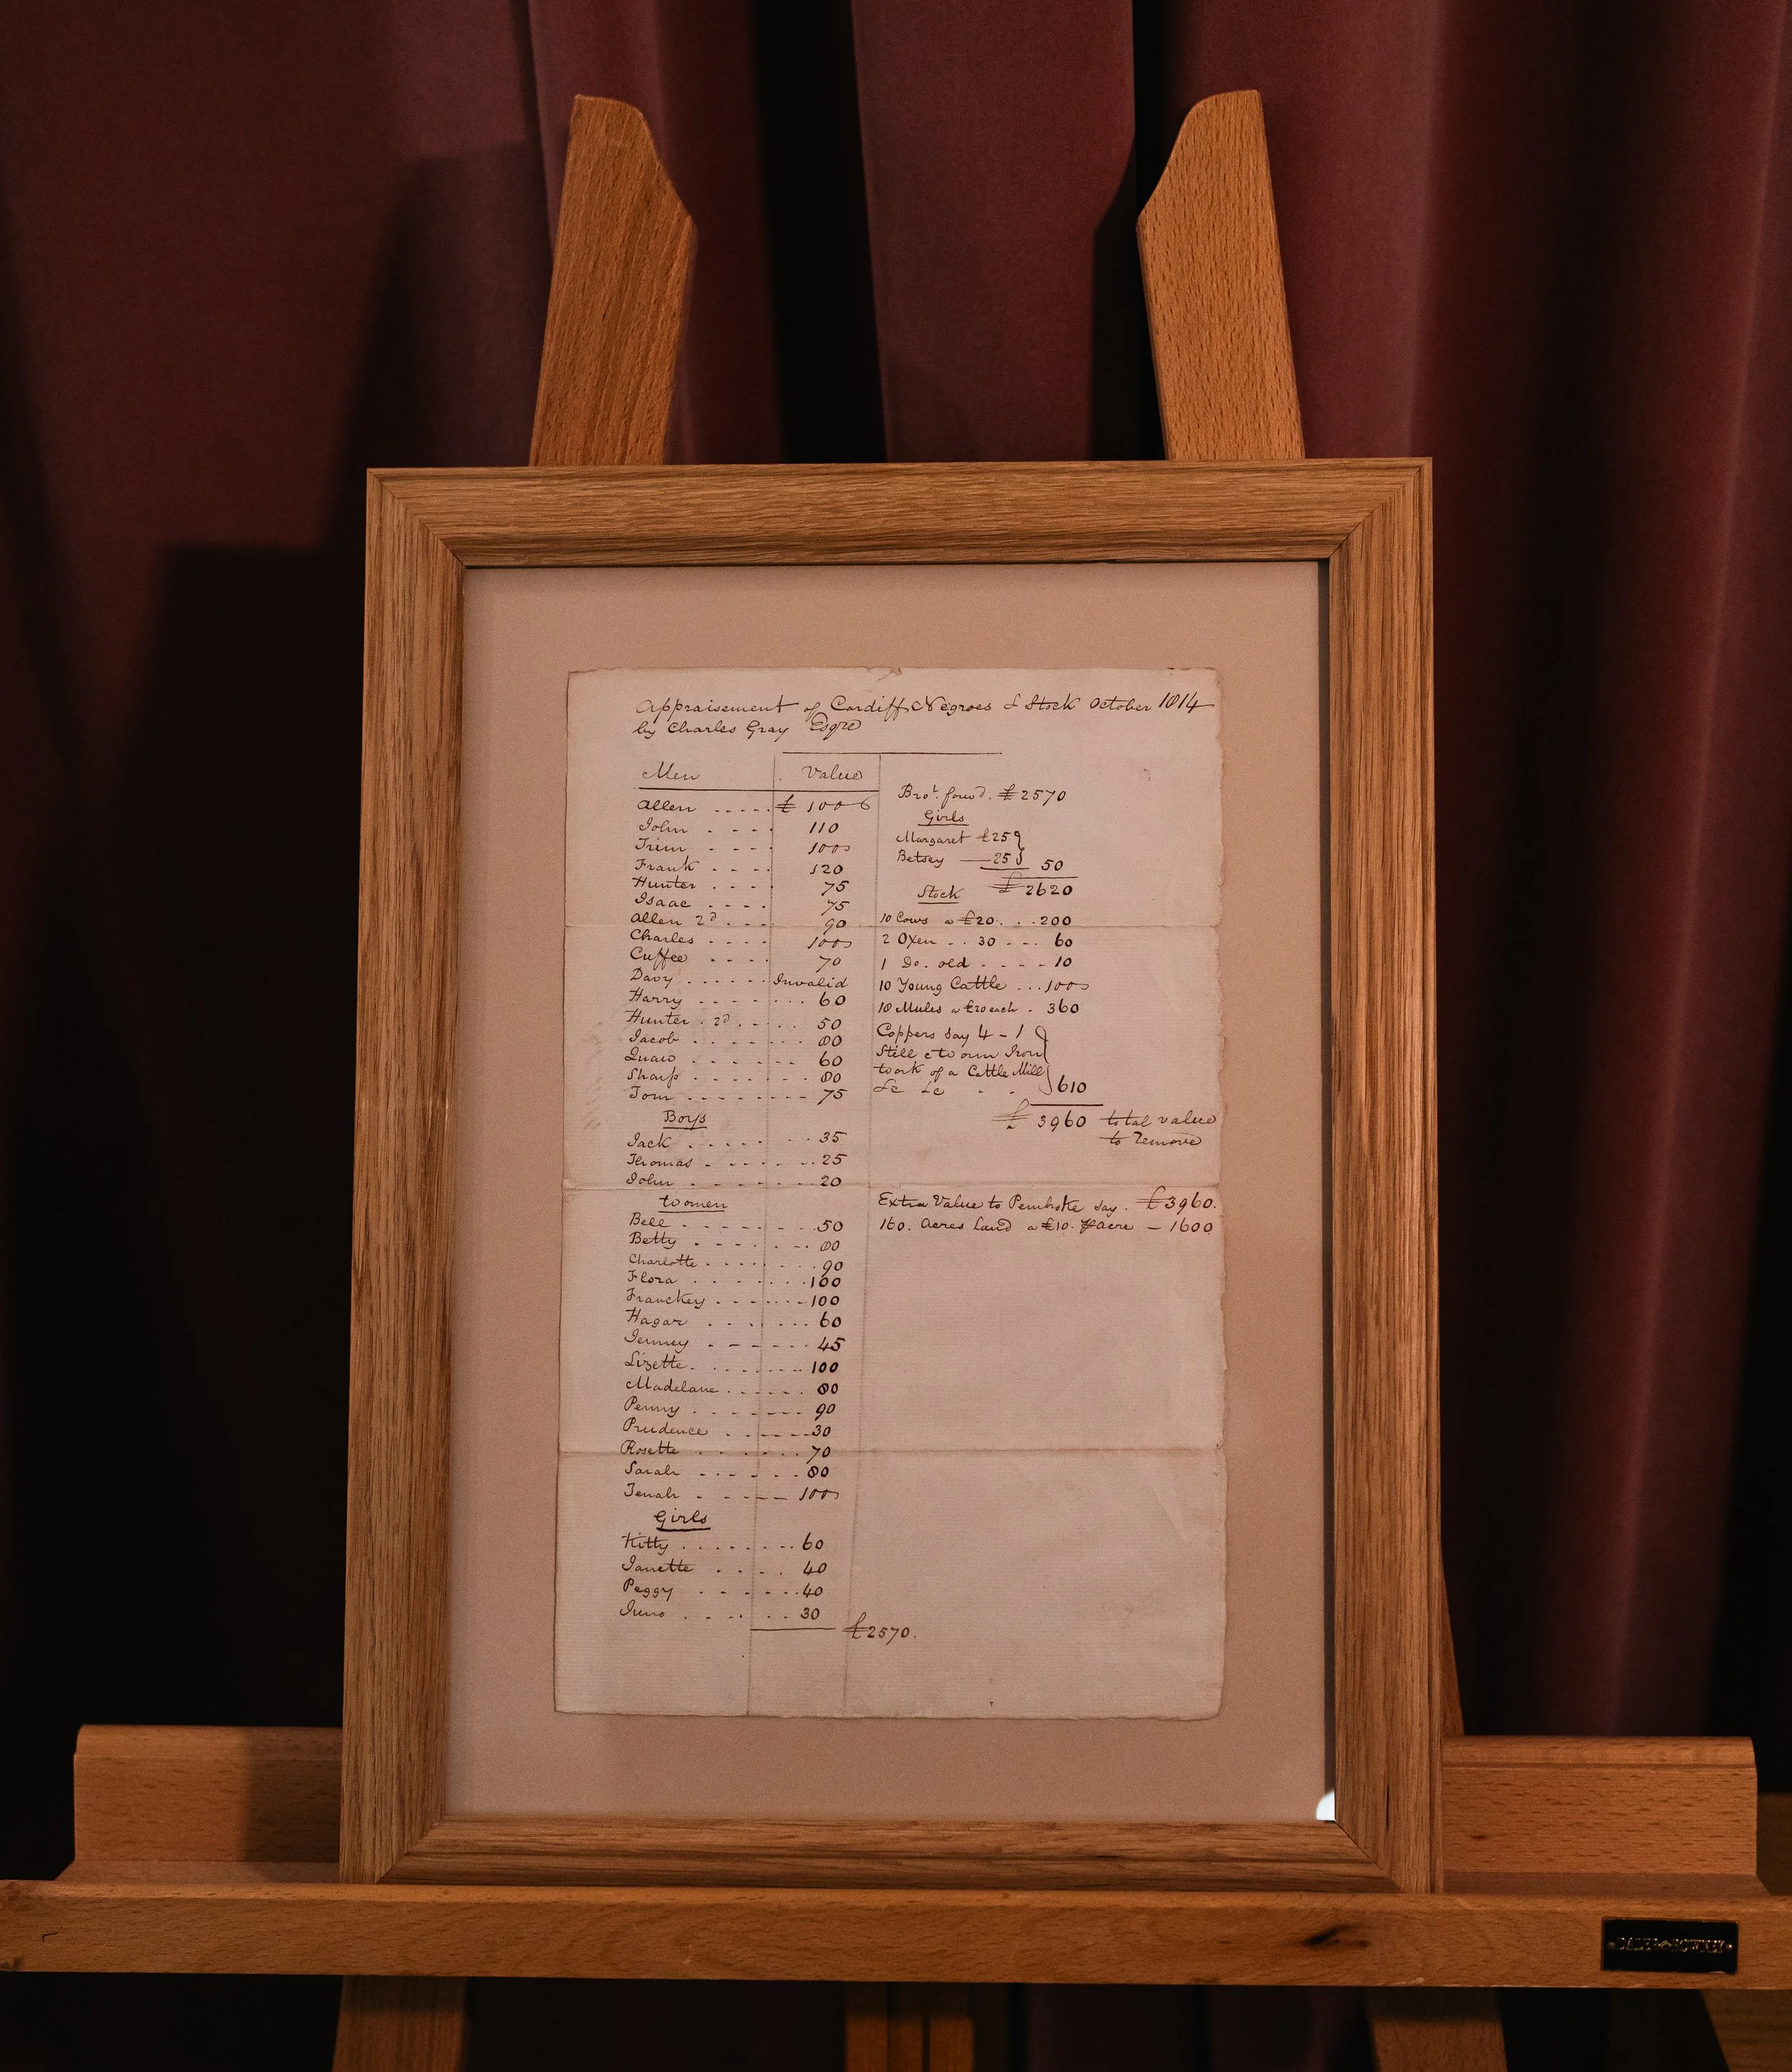 Appraisement of Cardiff Negroes & Stock October 1814
by Charles Gray Esqre
Men Value
Allen £ 100
John 110
Trim 100
Frank 120
Hunter 75
Isaac 75
Allen 2d 90
Charles 100
Cuffee 70
Davy Invalid
Harry 60
Hunter 2d 50
Jacob 80
Quaw 60
Sharp 80
Tom 75
Boys
Jack 35
Thomas 25
John 20
Women
Bell 50
Betty 80
Charlotte 90
Flora 100
Franckey 100
Hagar 60
Jenney 45
Lizette 100
Madelane 80
Penny 90
Prudence 30
Rosette 70
Sarah 80
Tenah 100
Girls
Kitty 60
Janette 40
Peggy 40
Juno 30
£2570.
Brot. forwd. £2570
Girls
Margaret £25
Betsey 25 50
£2620
Stock
10 Cows a £20 200
2 Oxen 30 60
1 Do. old 10
10 Young Cattle 100
18 Mules a £20 each 360
Coppers say 4 - 1
Still & Worm Iron
work of a Cattle Mill
&c &c 610
£3960 total value
to Remove
Extra Value to Pembroke say. £3960.
160. Acres Land a £10. acre - 1600
DALER ROWNEY